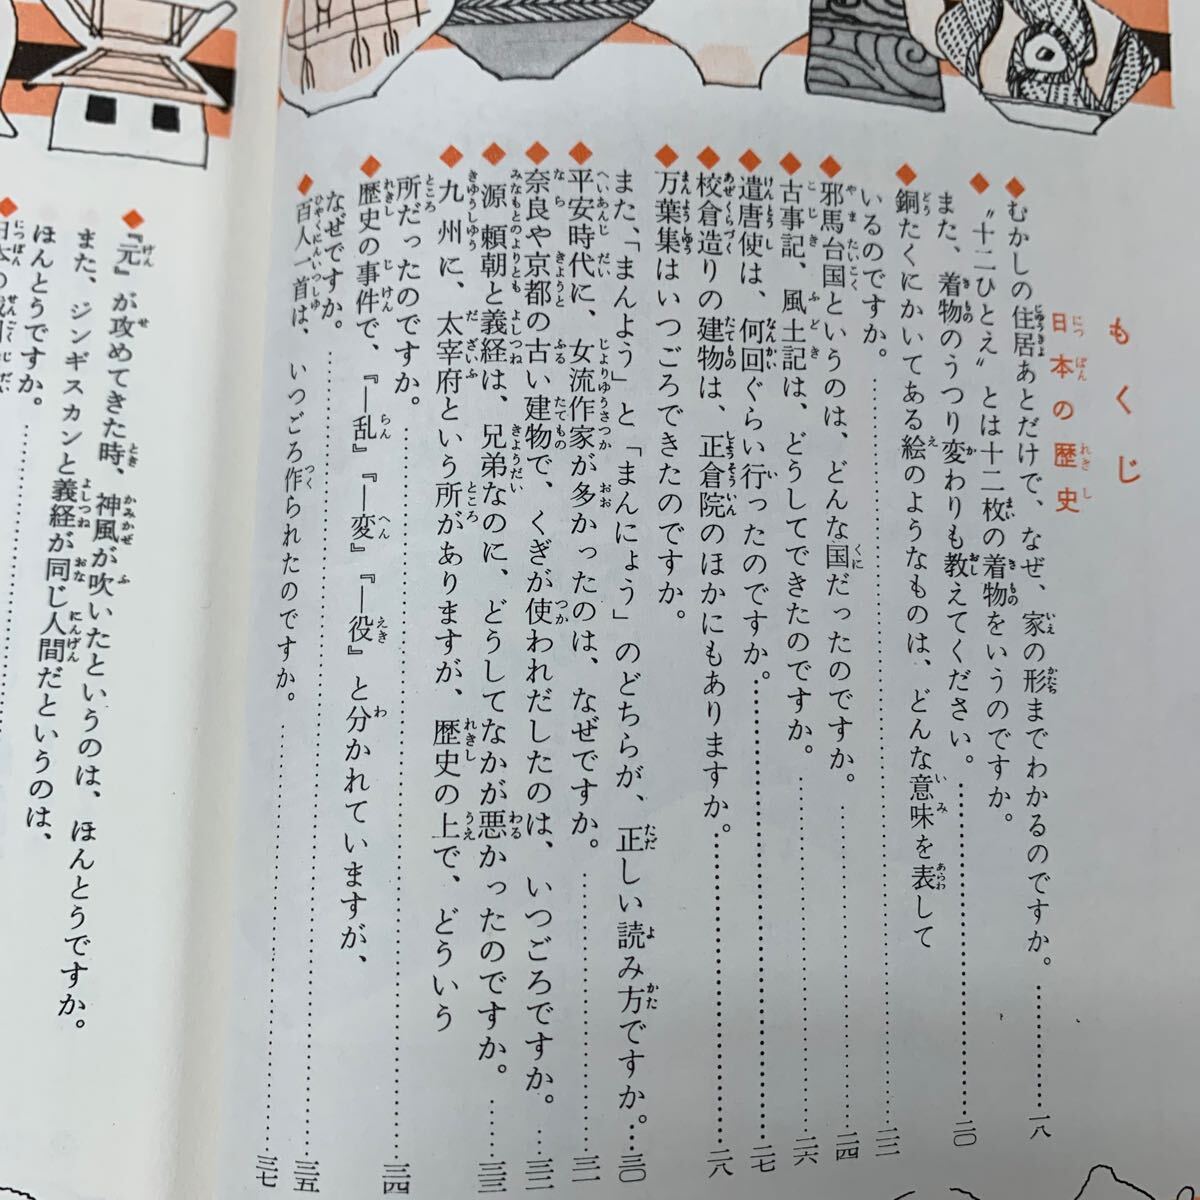 もくじ
日本の歴史
◆むかしの住居あとだけで、なぜ、家の形までわかるのですか。…………一八
◆"十二ひとえ"とは十二枚の着物をいうのですか。
また、着物のうつり変わりも教えてください。…………二〇
◆銅たくにかいてある絵のようなものは、どんな意味を表して
いるのですか。…………二二
◆邪馬台国というのは、どんな国だったのですか。…………二四
◆古事記、風土記は、どうしてできたのですか。…………二六
◆遣唐使は、何回ぐらい行ったのですか。…………二七
◆校倉造りの建物は、正倉院のほかにもありますか。…………二八
◆万葉集はいつごろできたのですか。
また、「まんよう」と「まんにょう」のどちらが、正しい読み方ですか。…三〇
◆平安時代に、女流作家が多かったのは、なぜですか。…………三一
◆奈良や京都の古い建物で、くぎが使われだしたのは、いつごろですか。…三二
◆源頼朝と義経は、兄弟なのに、どうしてなかが悪かったのですか。……三三
◆九州に、太宰府という所がありますが、歴史の上で、どういう
所だったのですか。…………三四
◆歴史の事件で、『―乱』『―変』『―役』と分かれていますが、
なぜですか。…………三五
◆百人一首は、いつごろ作られたのですか。…………三七
◆『元』が攻めてきた時、神風が吹いたというのは、ほんとうですか。
また、ジンギスカンと義経が同じ人間だというのは、
ほんとうですか。…………